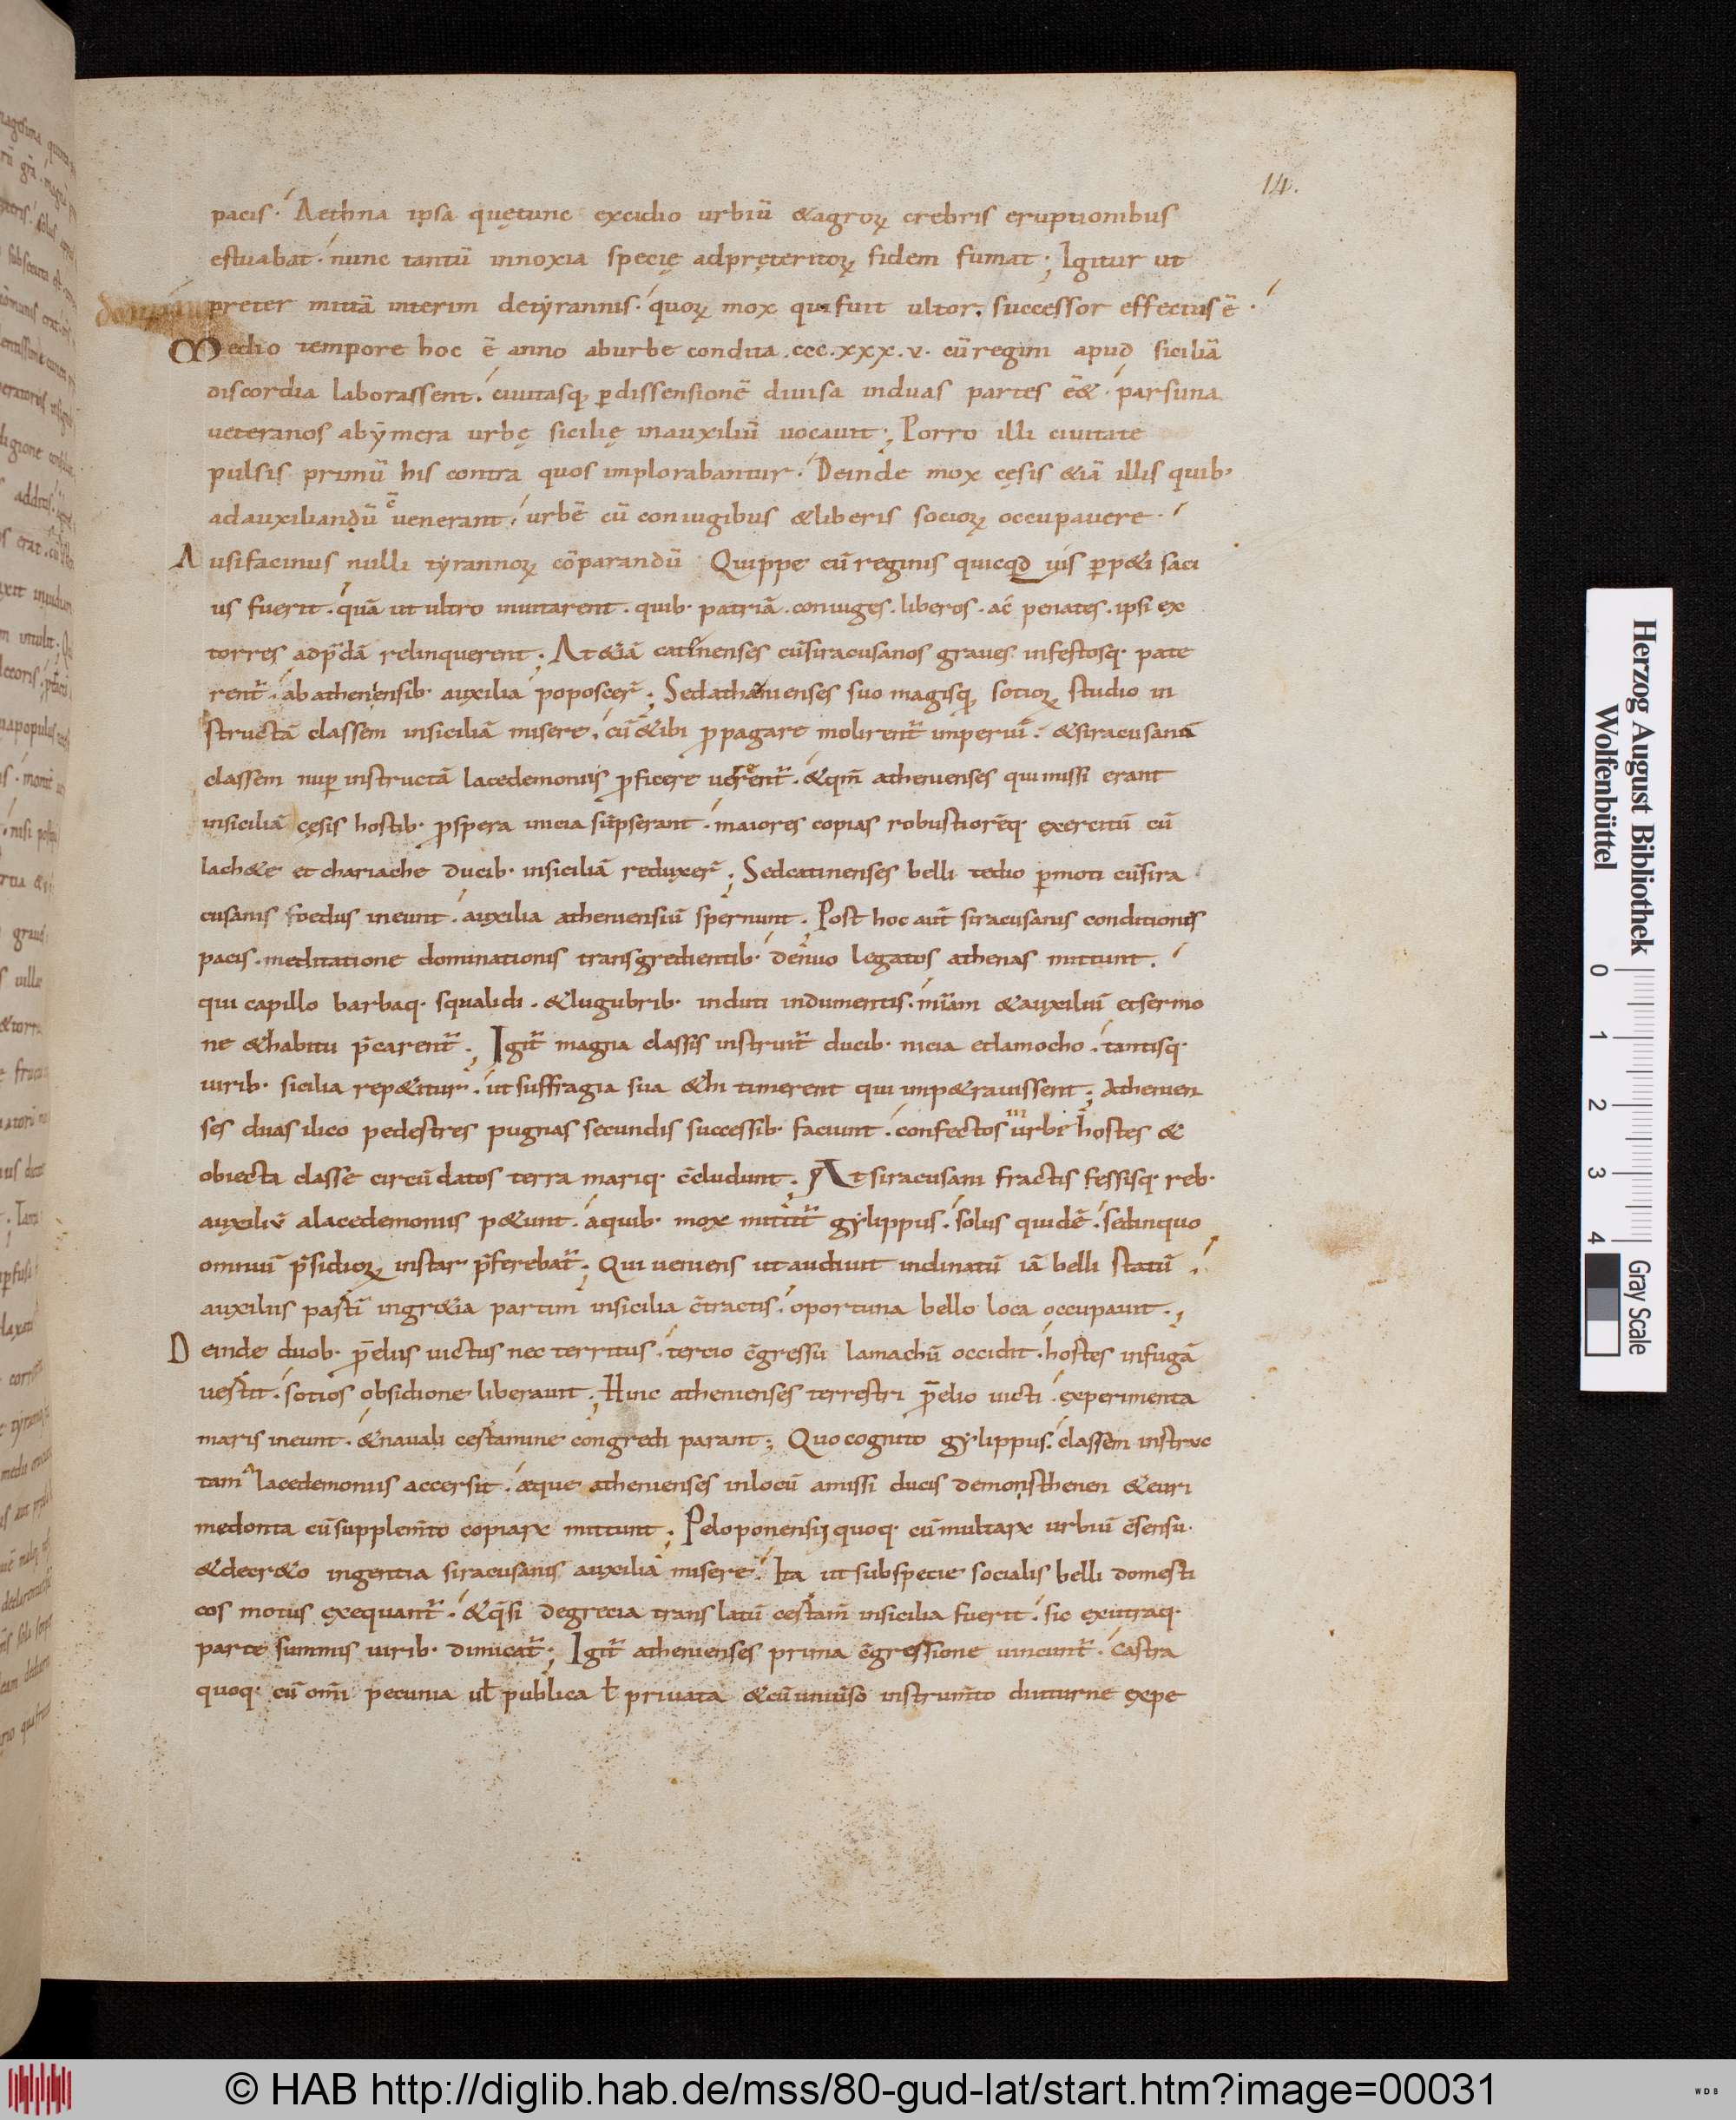 14.
pacis. Aethna ipsa quętunc excidio urbiū &agroꝝ crebris eruptionibus
estuabat. nunc tantū innoxia specię adpręteritoꝝ fidem fumat; Igitur ut
preter mittā interim detyrannis. quoꝝ mox qui fuit ultor. successor effectus ē.
Medio tempore hoc ē anno aburbe condita .ccc.xxx.v. cū regini apud siciliā
discordia laborassent. ciuitasq; ꝑdissensionē diuisa induas partes ēē&. parsuna
ueteranos abymera urbę sicilię inauxiliū uocauit; Porro illi ciuitate
pulsis primū his contra quos implorabantur. Deinde mox cęsis &iā illis quib;
adauxiliandū uenerant. urbē cū coniugibus &liberis socioꝝ occupauere.
Ausi facinus nulli tyrannoꝝ cōparandū Quippe cū reginis quicqd uis ꝑp&i saci
us fuerit. quā ut ultro inuitarent. quib. patriā. coniuges. liberos. ac penates. ipsi ex
torres adp̄dā relinquerent; At &iā catinenses cū siracusanos graues infestosq. pate
rent̄. ab atheniensib. auxilia poposcer̄; Sed athenienses suo magisq; sotioꝝ studio in
structā classem insiciliā misere. cū &ibi ꝓpagare molirent̄ imperiū. &siracusanā
classem nuꝑ instructā lacedemoniis ꝓficere uererent̄. &qm̄ athenienses qui missi erant
insiciliā cęsis hostib. ꝓspera inicia sūpserant. maiores copias robustiorēq. exercitū cū
lach&e et chariache ducib. insiciliā reduxer̄; Sed catinenses belli tedio ꝑmoti cū sira
cusanis foedus ineunt. auxilia atheniensiū spernunt. Post hoc aut̄ siracusanis conditionis
pacis. meditatione dominationis transgredientib. denuo legatos athenas mittunt.
qui capillo barbaq. squalidi. &lugubrib. induti indumentis. miam &auxiliū et sermo
ne &habitu p̄carent̄; Igit̄ magna classis instruit̄ ducib. nicia etlamocho. tantisq.
uirib. sicilia rep&itur. ut suffragia sua &hi timerent qui imp&rauissent; Athenien
ses duas ilico pedestres pugnas secundis successib. faciunt. confectos in urbe hostes &
obiecta classe circū datos terra mariq. c̄cludunt. At siracusani fractis fessisq. reb.
auxiliū alacedemoniis p&unt. aquib. mox mittit̄ gylippus. solus quidē. sed inquo
omniū p̄sidioꝝ instar p̄ferebat̄; Qui ueniens ut audiuit inclinatū iā belli statū.
auxiliis partī ingr&ia partim insicilia c̄tractis. oportuna bello loca occupauit.;
Deinde duob. p̄eliis uictus nec territus. tercio c̄gressu lamachū occidit. hostes infugā
uertit. sotios obsidione liberauit; Hinc athenienses terrestri p̄elio uicti. experimenta
maris ineunt. &nauali certamine congredi parant; Quo cognito gylippus. classem instruc
tam lacedemoniis accersit. atque athenienses inlocū amissi ducis demonsthenen &euri
medonta cū supplem̄to copiaꝝ mittunt; Peloponensij quoq. cū multaꝝ urbiū c̄sensu.
&decr&o ingentia siracusanis auxilia misere. Ita ut subspecie socialis belli domesti
cos motus exequant̄. &q̄si degrecia trans latū certam̄ insicilia fuerit. sic exutraq.
parte summis uirib. dimicat̄; Igit̄ athenienses prima c̄gressione uincunt̄. castra
quoq. cū om̄i pecunia ul̄ publica l̄ priuata &cū uniuso instrum̄to diuturne expe
Herzog August Bibliothek
Wolfenbüttel
0 1 2 3 4
Gray Scale
© HAB http://diglib.hab.de/mss/80-gud-lat/start.htm?image=00031
WDB